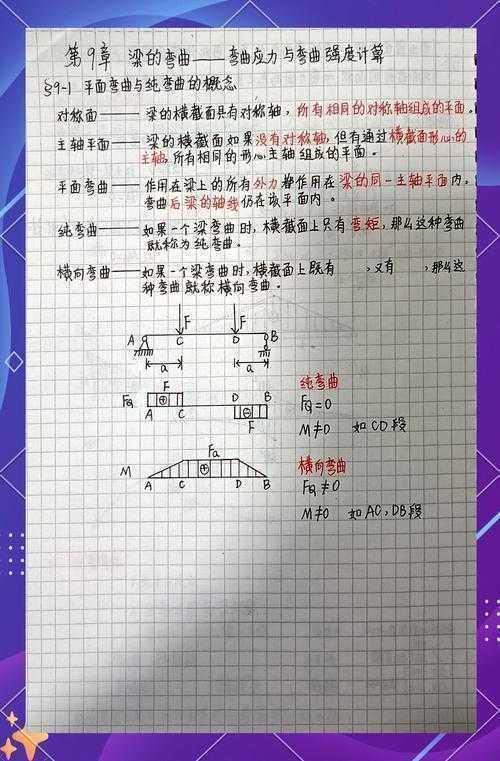 第9章 梁的弯曲——弯曲应力与弯曲强度计算
§9-1 平面弯曲与纯弯曲的概念
对称面——梁的横截面具有对称轴，所有相同的对称轴组成的平面。
主轴平面——梁的横截面如果没有对称轴，但有通过横截面形心的
主轴，所有相同的形心主轴组成的平面。
平面弯曲——作用在梁上的所有外力都作用在梁的同一主轴平面内，
弯曲后梁的轴线仍在该平面内。
纯弯曲——如果一个梁弯曲时，横截面上只有弯矩，那么这种弯曲
就称为纯弯曲。
横向弯曲——如果一个梁弯曲时，横截面上既有　　，又有　　，那么这
种弯曲就称横向弯曲。
F F
A C D B
a a
F
FQ ⊕ D B
A C ⊖
F
纯弯曲
FQ=0
M≠0 如CD段
Fa
M ⊕
A C D B
横向弯曲
FQ≠0
M≠0 如AC，DB段